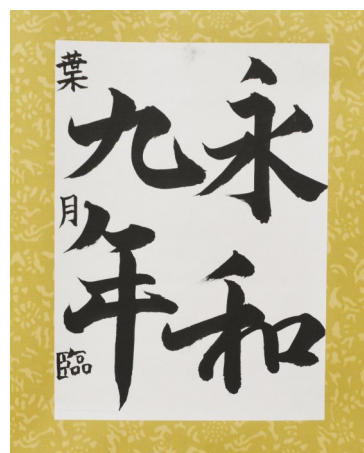 永和
九年
葉月臨